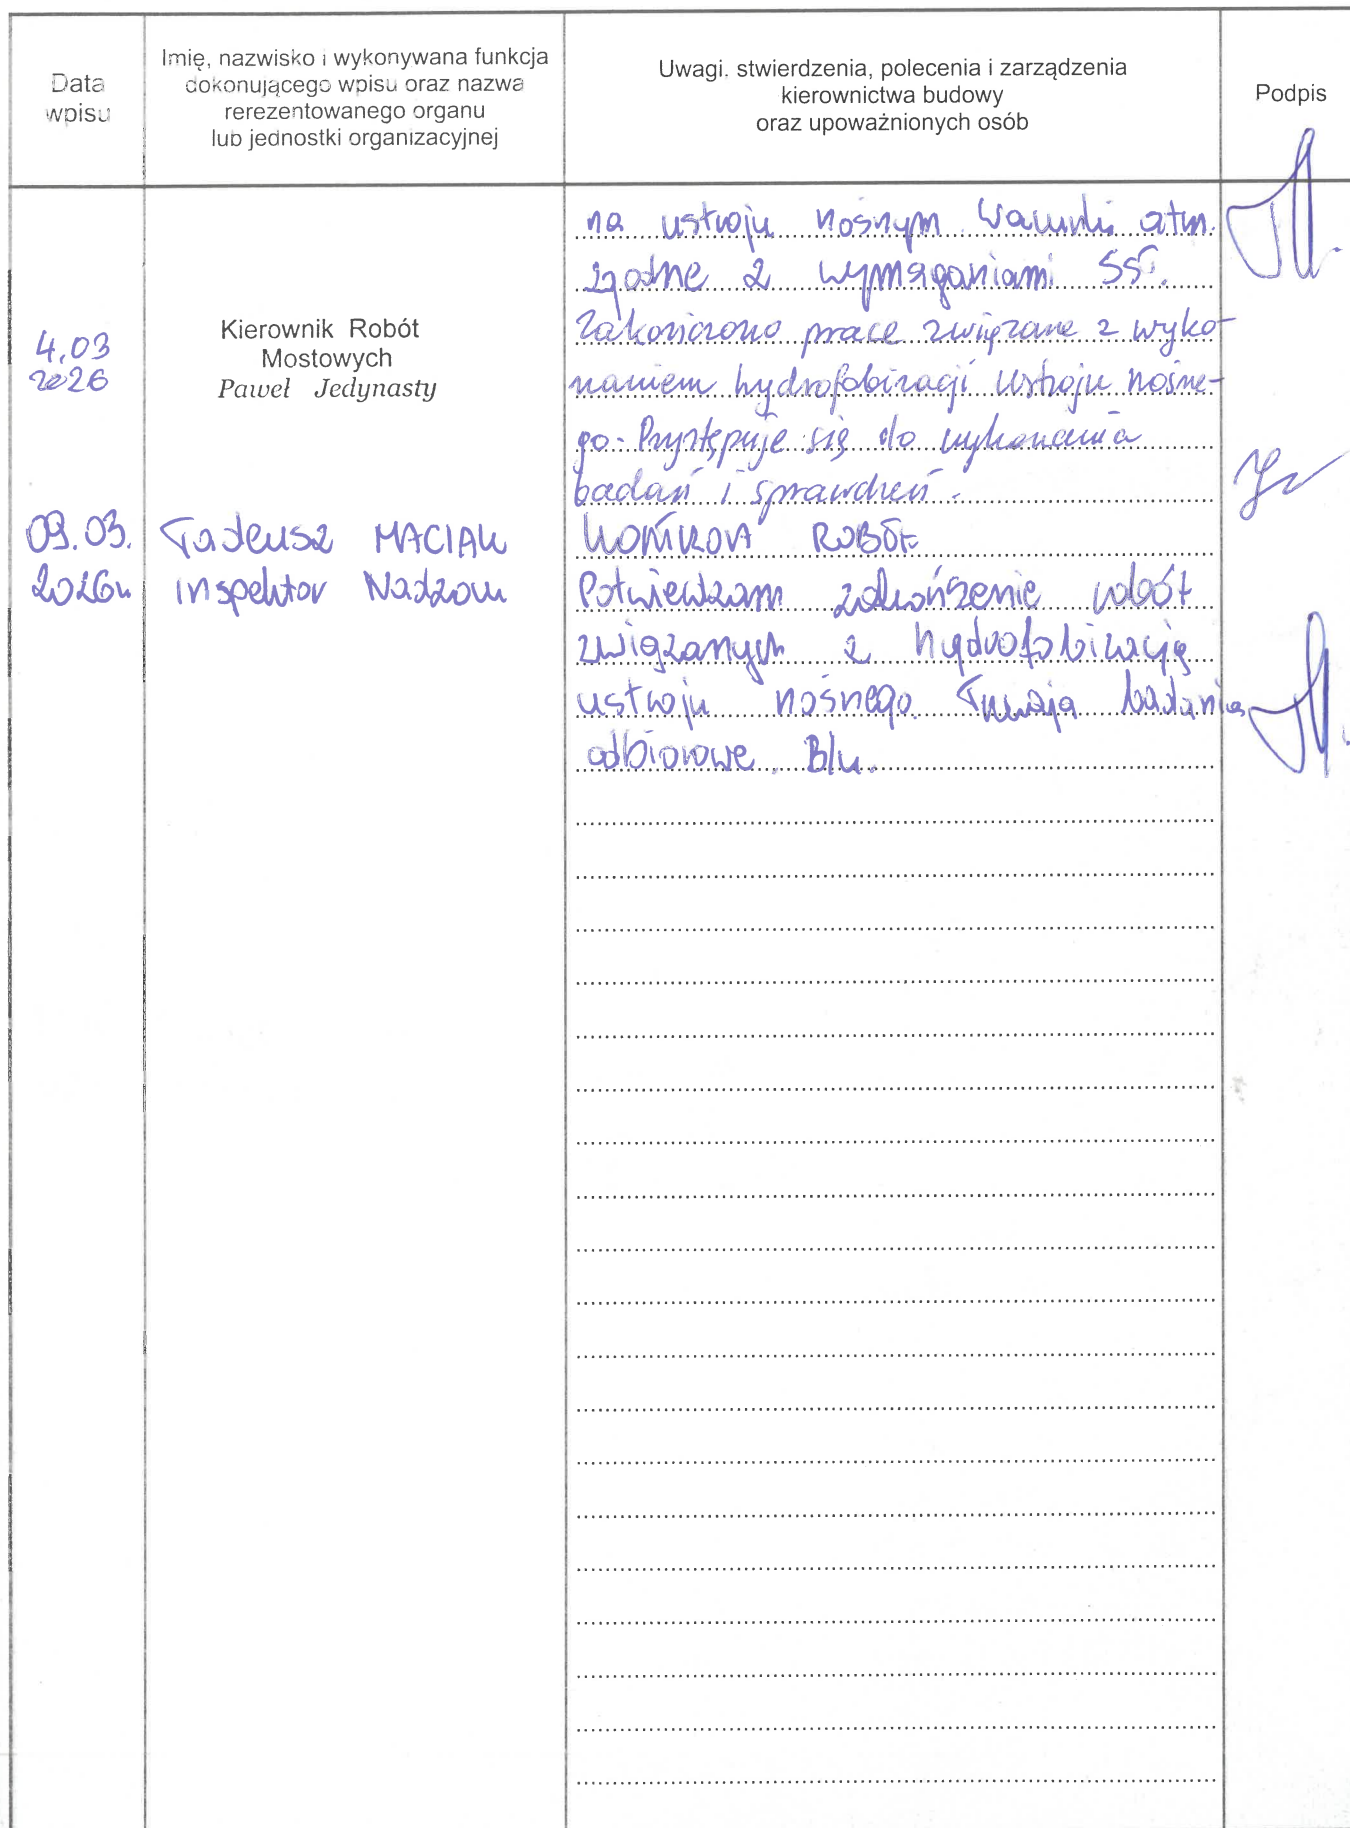 Data wpisu
Imię, nazwisko i wykonywana funkcja
dokonującego wpisu oraz nazwa
rerezentowanego organu
lub jednostki organizacyjnej
Uwagi. stwierdzenia, polecenia i zarządzenia
kierownictwa budowy
oraz upoważnionych osób
Podpis
na ustroju nośnym. Warunki atm.
zgodne z wymaganiami SST.
4.03
2026
Kierownik Robót
Mostowych
Paweł Jedynasty
Zakończono prace związane z wyko-
naniem hydrofobizacji ustroju nośne-
go. Przystępuje się do wykonania
badań i sprawdzeń.
09.03.
2026r
Tadeusz MACIAK
Inspektor Nadzoru
KONTROLA ROBÓT
Potwierdzam zakończenie robót
związanych z hydrofobizacją
ustroju nośnego. Trwają badania
odbiorowe. B/u.